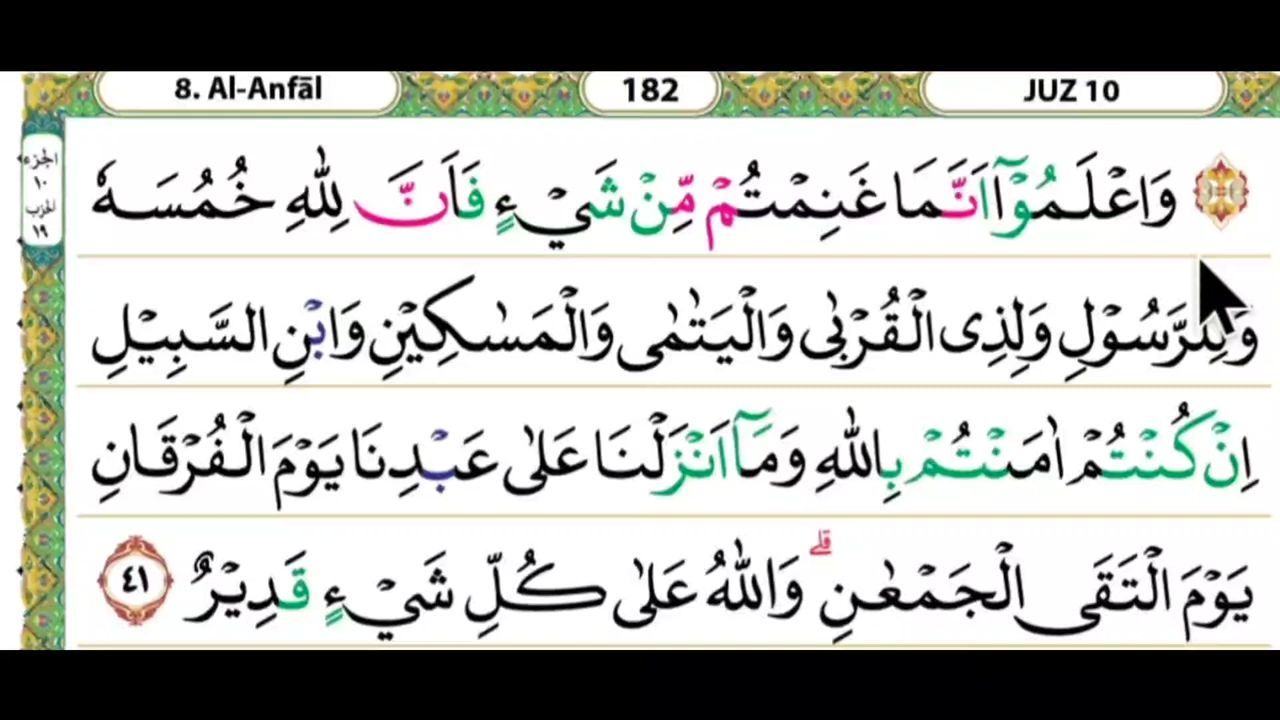 8. Al-Anfāl 182 JUZ 10
الجزء
١٠
الحزب
١٩
وَاعْلَمُوْٓا اَنَّمَا غَنِمْتُمْ مِّنْ شَيْءٍ فَاَنَّ لِلّٰهِ خُمُسَهٗ
وَلِلرَّسُوْلِ وَلِذِى الْقُرْبٰى وَالْيَتٰمٰى وَالْمَسٰكِيْنِ وَابْنِ السَّبِيْلِ
اِنْ كُنْتُمْ اٰمَنْتُمْ بِاللّٰهِ وَمَآ اَنْزَلْنَا عَلٰى عَبْدِنَا يَوْمَ الْفُرْقَانِ
يَوْمَ الْتَقَى الْجَمْعٰنِۗ وَاللّٰهُ عَلٰى كُلِّ شَيْءٍ قَدِيْرٌ ٤١